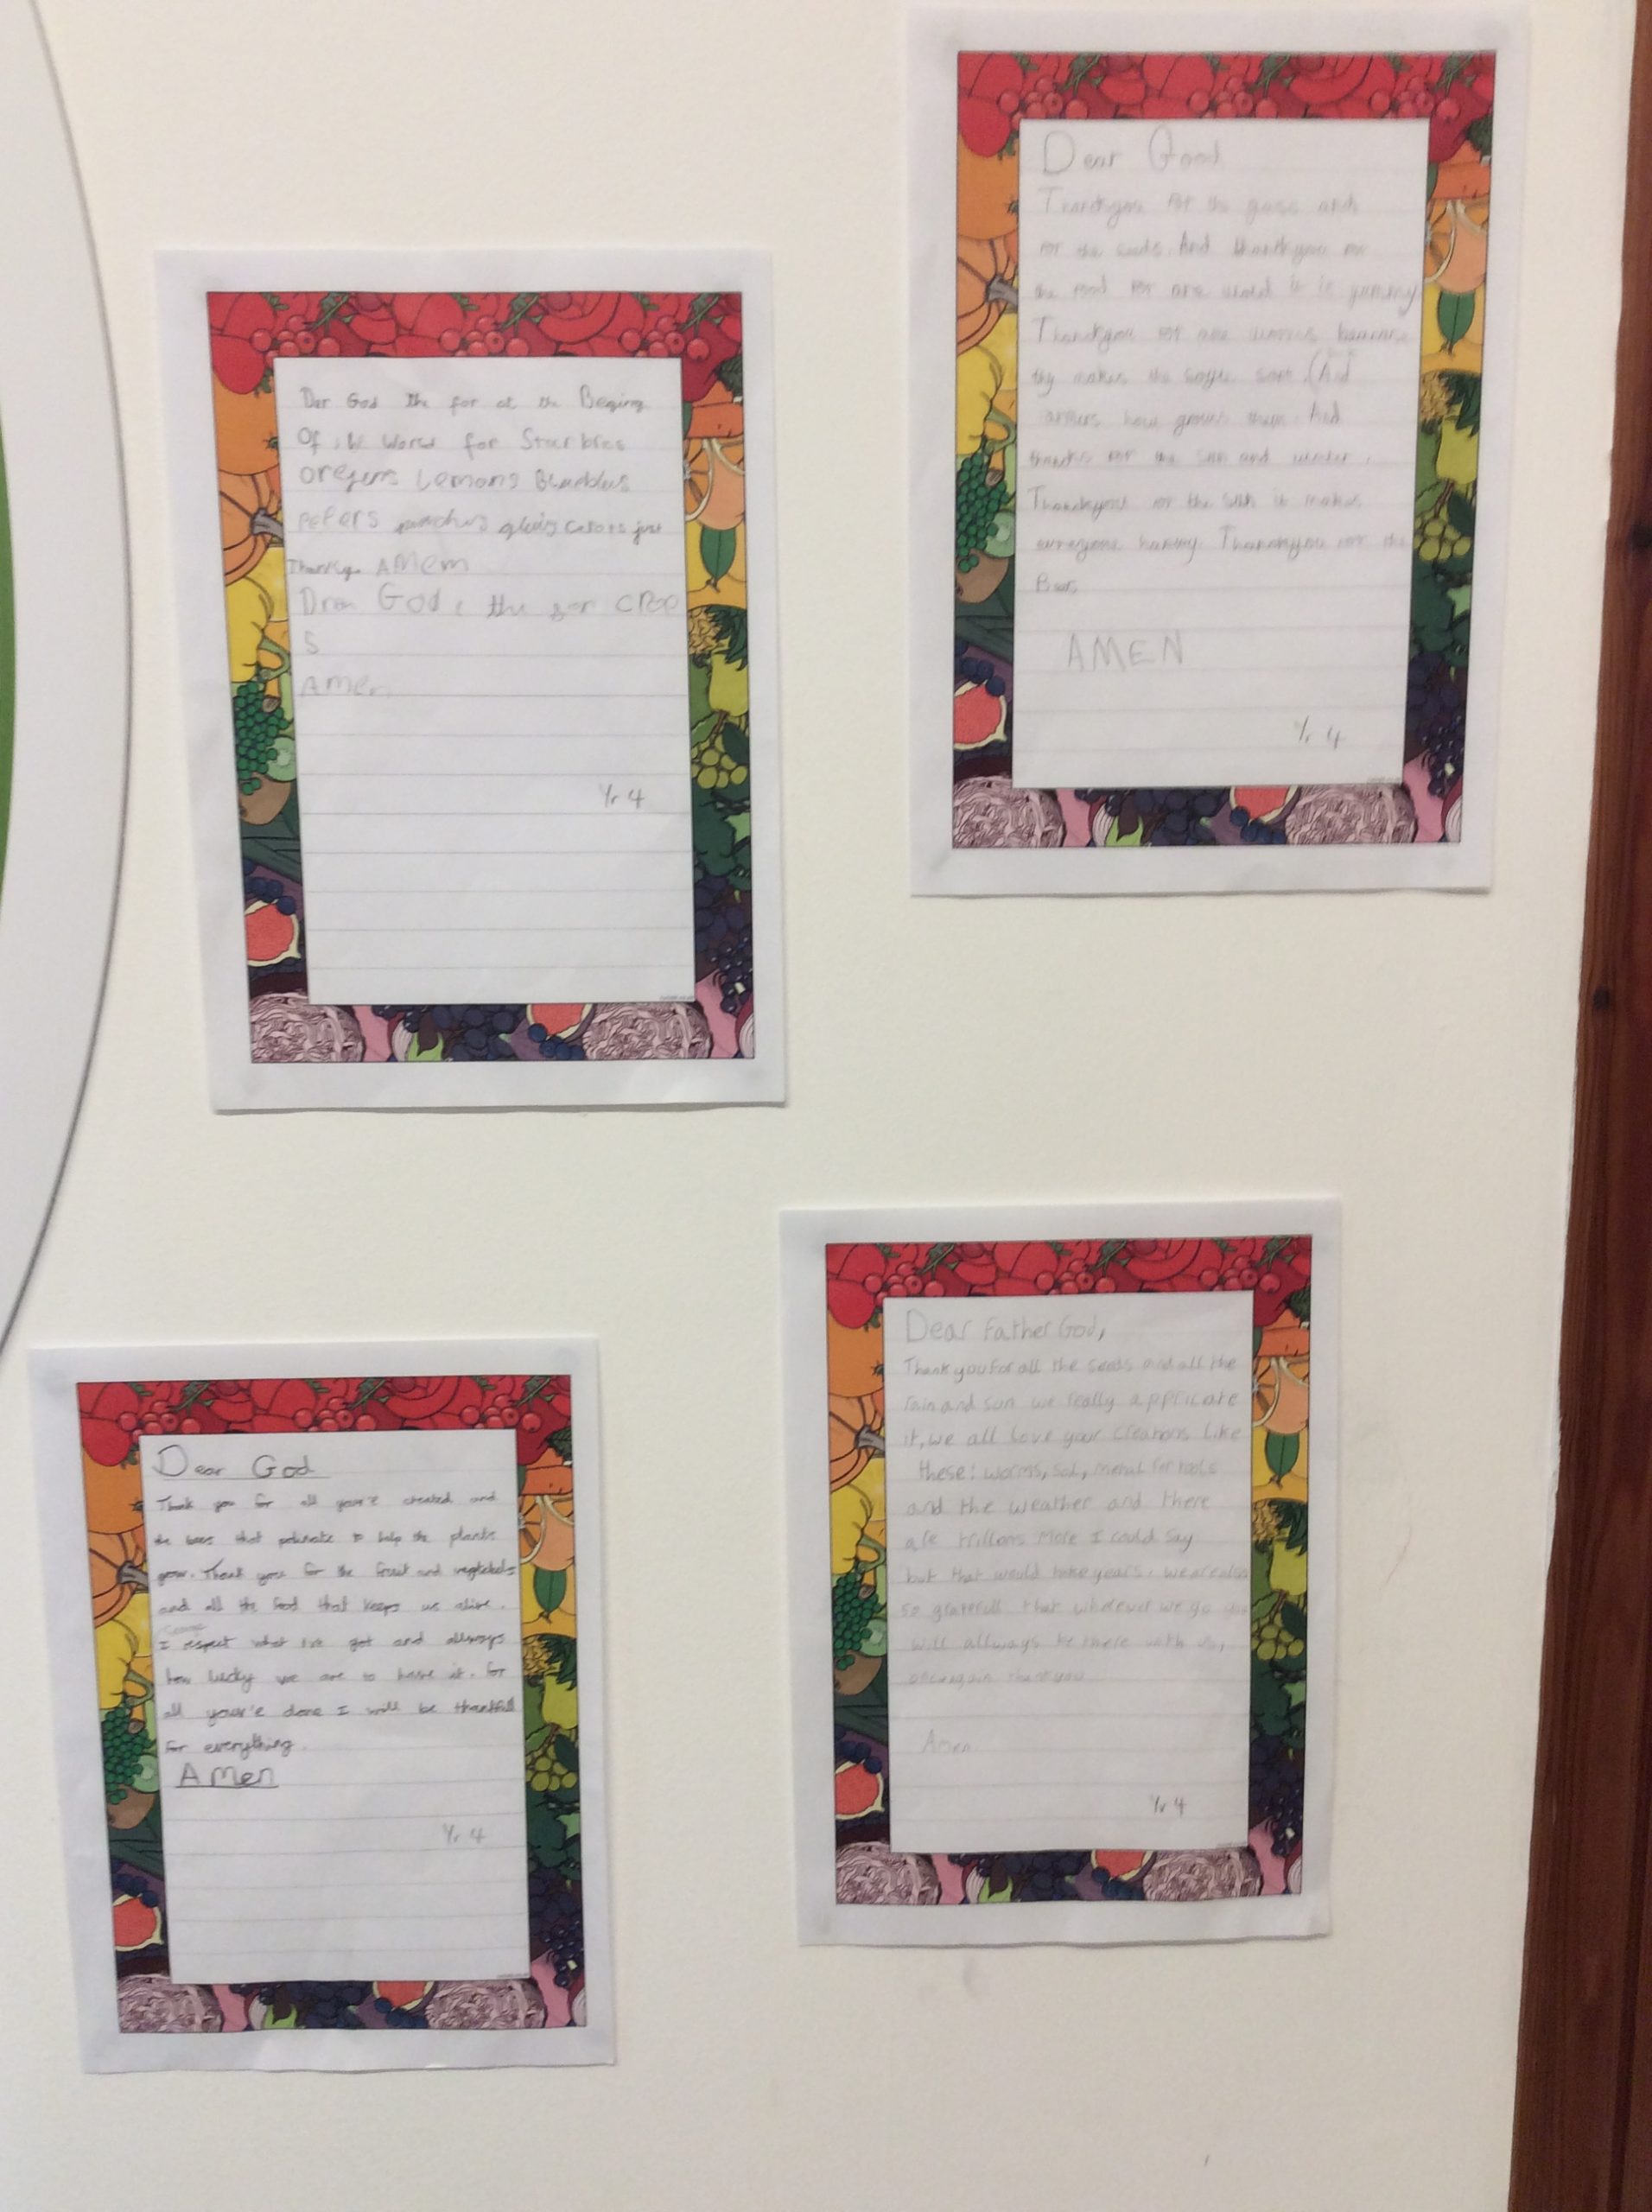 Dear Good
Thankyou for the grass and
for the seeds. And thankyou for
the food for are world It is yummy
Thankyou for are worms because
thy makes the soyle soft. And
how grows them. And
thanks for the sun and water.
Thankyou for the sun it makes
evreyone happy. Thankyou for the
Bees
AMEN
Yr 4
Der God the for at the Beging
Of the World for
Oregens Lemons
pefers carots just
AMem
God, the for CROP
S
Amen
Yr 4
Dear Father God,
Thank you for all the seeds and all the
rain and sun we really applicate
it, we all love your creations like
these: worms, soil, metal for tools
and the weather and there
are trillons more I could say
but that would take years. we are also
so gratefull that wherever we go you
will allways be there with us,
once again thankyou
Amen
Yr 4
Dear God
Thank you for all your'e created and
the bees that polinate to help the plants
grow. Thank you for the fruit and
and all the food that keeps us alive.
I respect what I've got and allways
how lucky we are to have it. for
all your'e done I will be thankfull
for everything.
Amen
Yr 4